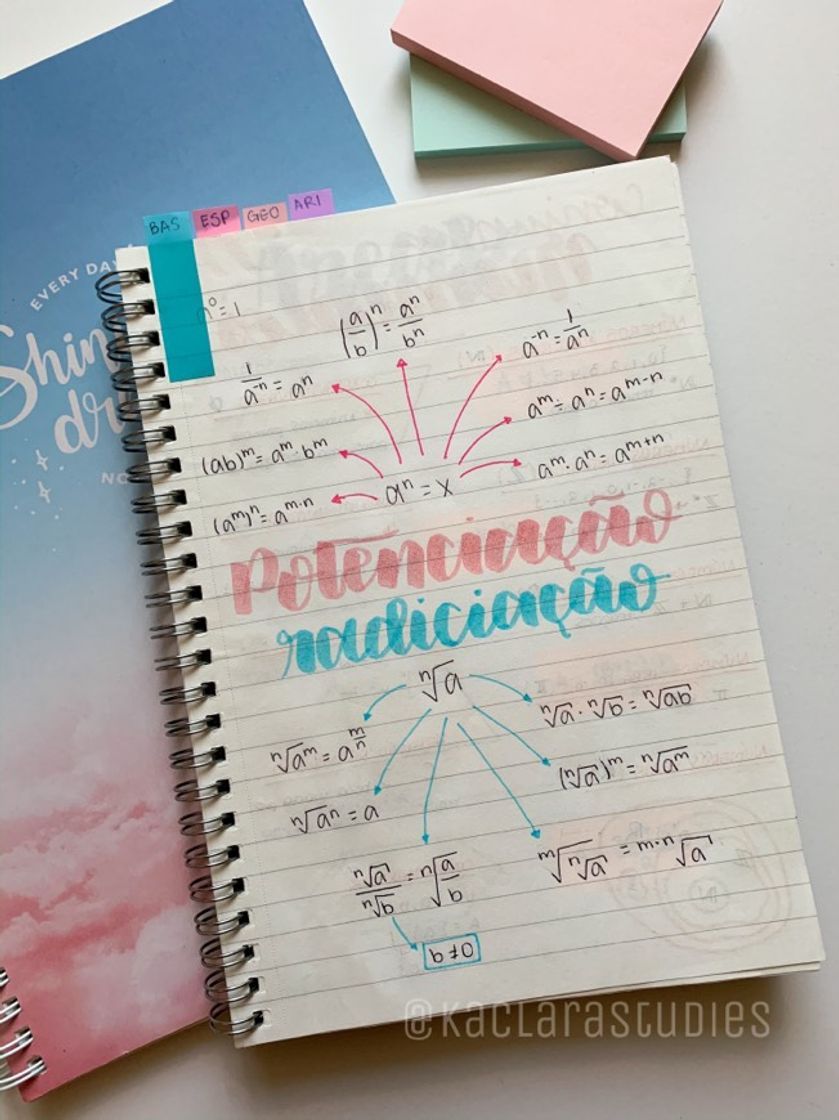 EVERY DAY
BAS ESP GEO ARI
a⁰ = 1
(a/b)ⁿ = aⁿ/bⁿ
a⁻ⁿ = 1/aⁿ
1/a⁻ⁿ = aⁿ
aᵐ ÷ aⁿ = aᵐ⁻ⁿ
(ab)ᵐ = aᵐ · bᵐ
aᵐ · aⁿ = aᵐ⁺ⁿ
aⁿ = x
(aᵐ)ⁿ = aᵐ·ⁿ
Potenciação
radiciação
ⁿ√a
ⁿ√a · ⁿ√b = ⁿ√ab
ⁿ√aᵐ = a^(m/n)
(ⁿ√a)ᵐ = ⁿ√aᵐ
ⁿ√aⁿ = a
ⁿ√a/ⁿ√b = ⁿ√(a/b)
ᵐ√ⁿ√a = ᵐ·ⁿ√a
b ≠ 0
@KACLARASTUDIES